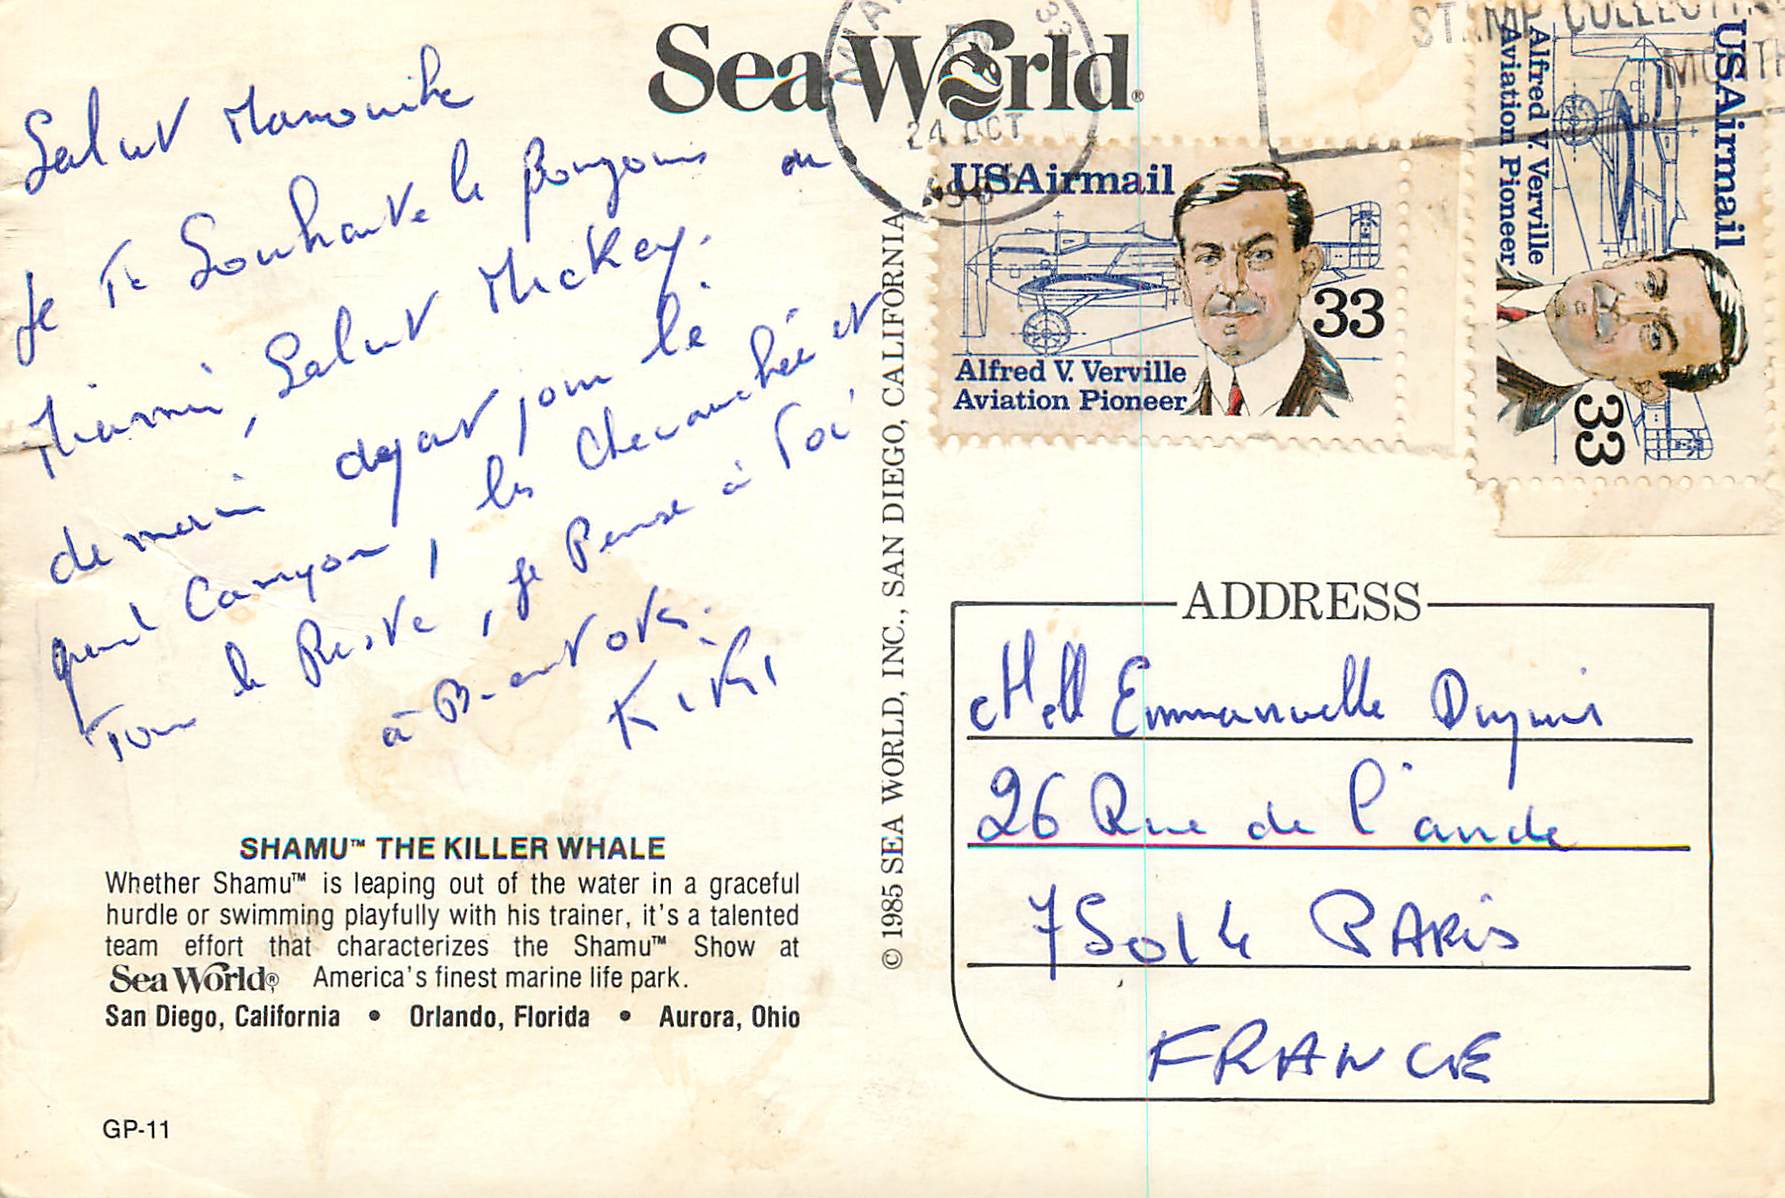 Salut Manouche
Je Te Souhaite le bonjour de
Miami, Salut Mickey.
demain depart pour le
grand Canyon, les chevauchée et
Tour le Reste, je Pense à Toi
à Bientot.
KiKi
SHAMU™ THE KILLER WHALE
Whether Shamu™ is leaping out of the water in a graceful
hurdle or swimming playfully with his trainer, it's a talented
team effort that characterizes the Shamu™ Show at
Sea World® America's finest marine life park.
San Diego, California • Orlando, Florida • Aurora, Ohio
GP-11
Sea World®
© 1985 SEA WORLD, INC., SAN DIEGO, CALIFORNIA
PM
24 OCT
STAMP COLLECTING
MONTH
USAirmail
33
Alfred V. Verville
Aviation Pioneer
USAirmail
33
Alfred V. Verville
Aviation Pioneer
ADDRESS
Mell Emmanuelle Dupuis
26 Rue de l'aude
75014 PARIS
FRANCE